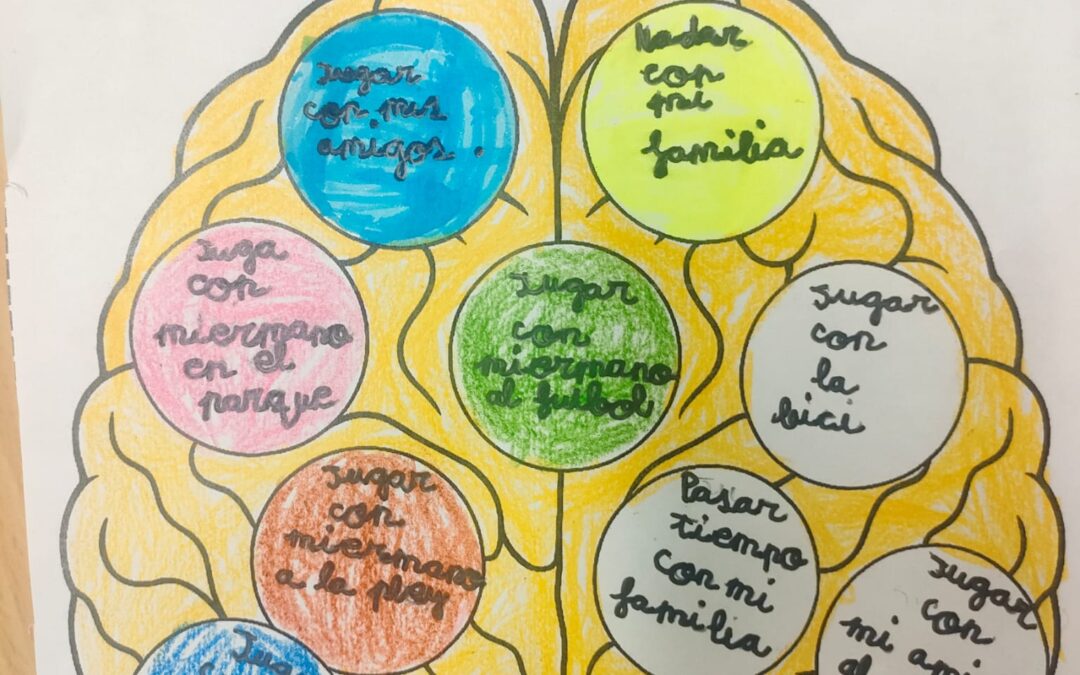 Jugar
con mis
amigos.
Nadar
con
mi
familia
Juga
con
miermano
en el
parque
Jugar
con
miermano
al futbol
Jugar
con
la
bici
Jugar
con
miermano
a la play
Pasar
tiempo
con mi
familia
Jug
Jugar
con
mi ami
al